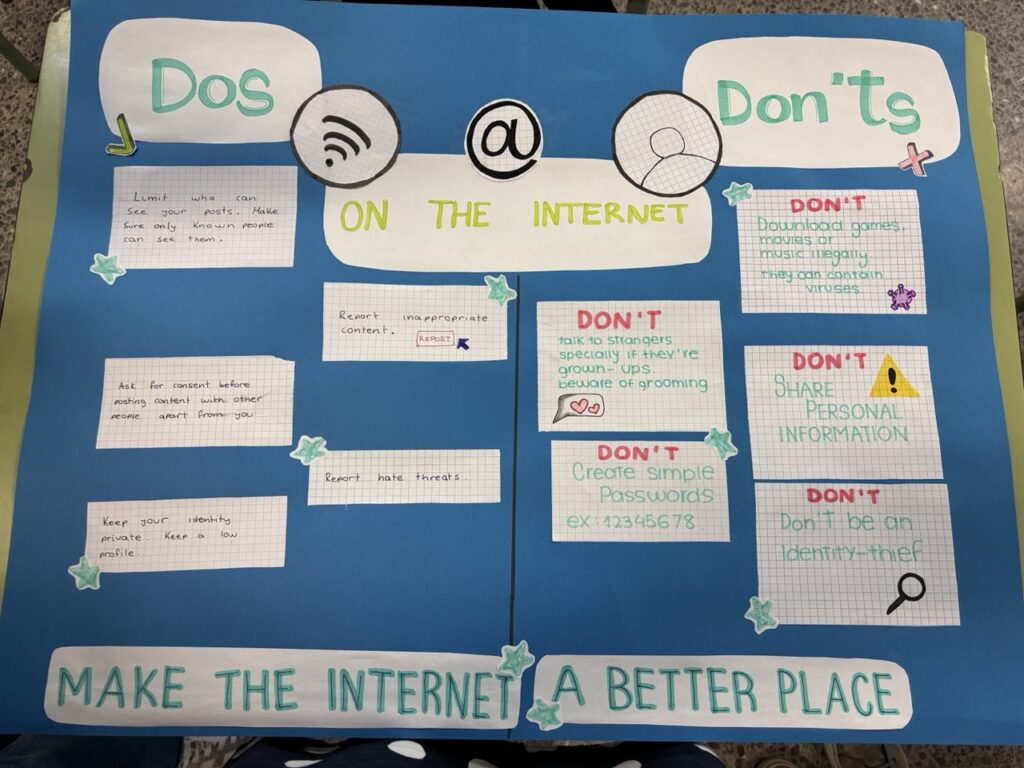 Dos
Don'ts
@
ON THE INTERNET
Limit who can
see your posts. Make
sure only known people
can see them.
Report inappropriate
content.
REPORT
Ask for consent before
posting content with other
people apart from you
Report hate threats.
Keep your identity
private. Keep a low
profile.
DON'T
Download games,
movies or
music illegally.
They can contain
viruses.
DON'T
talk to strangers
specially if they're
grown-ups.
beware of grooming
DON'T
SHARE
PERSONAL
INFORMATION
DON'T
Create simple
Passwords
ex: 12345678
DON'T
Don't be an
Identity-thief
MAKE THE INTERNET A BETTER PLACE